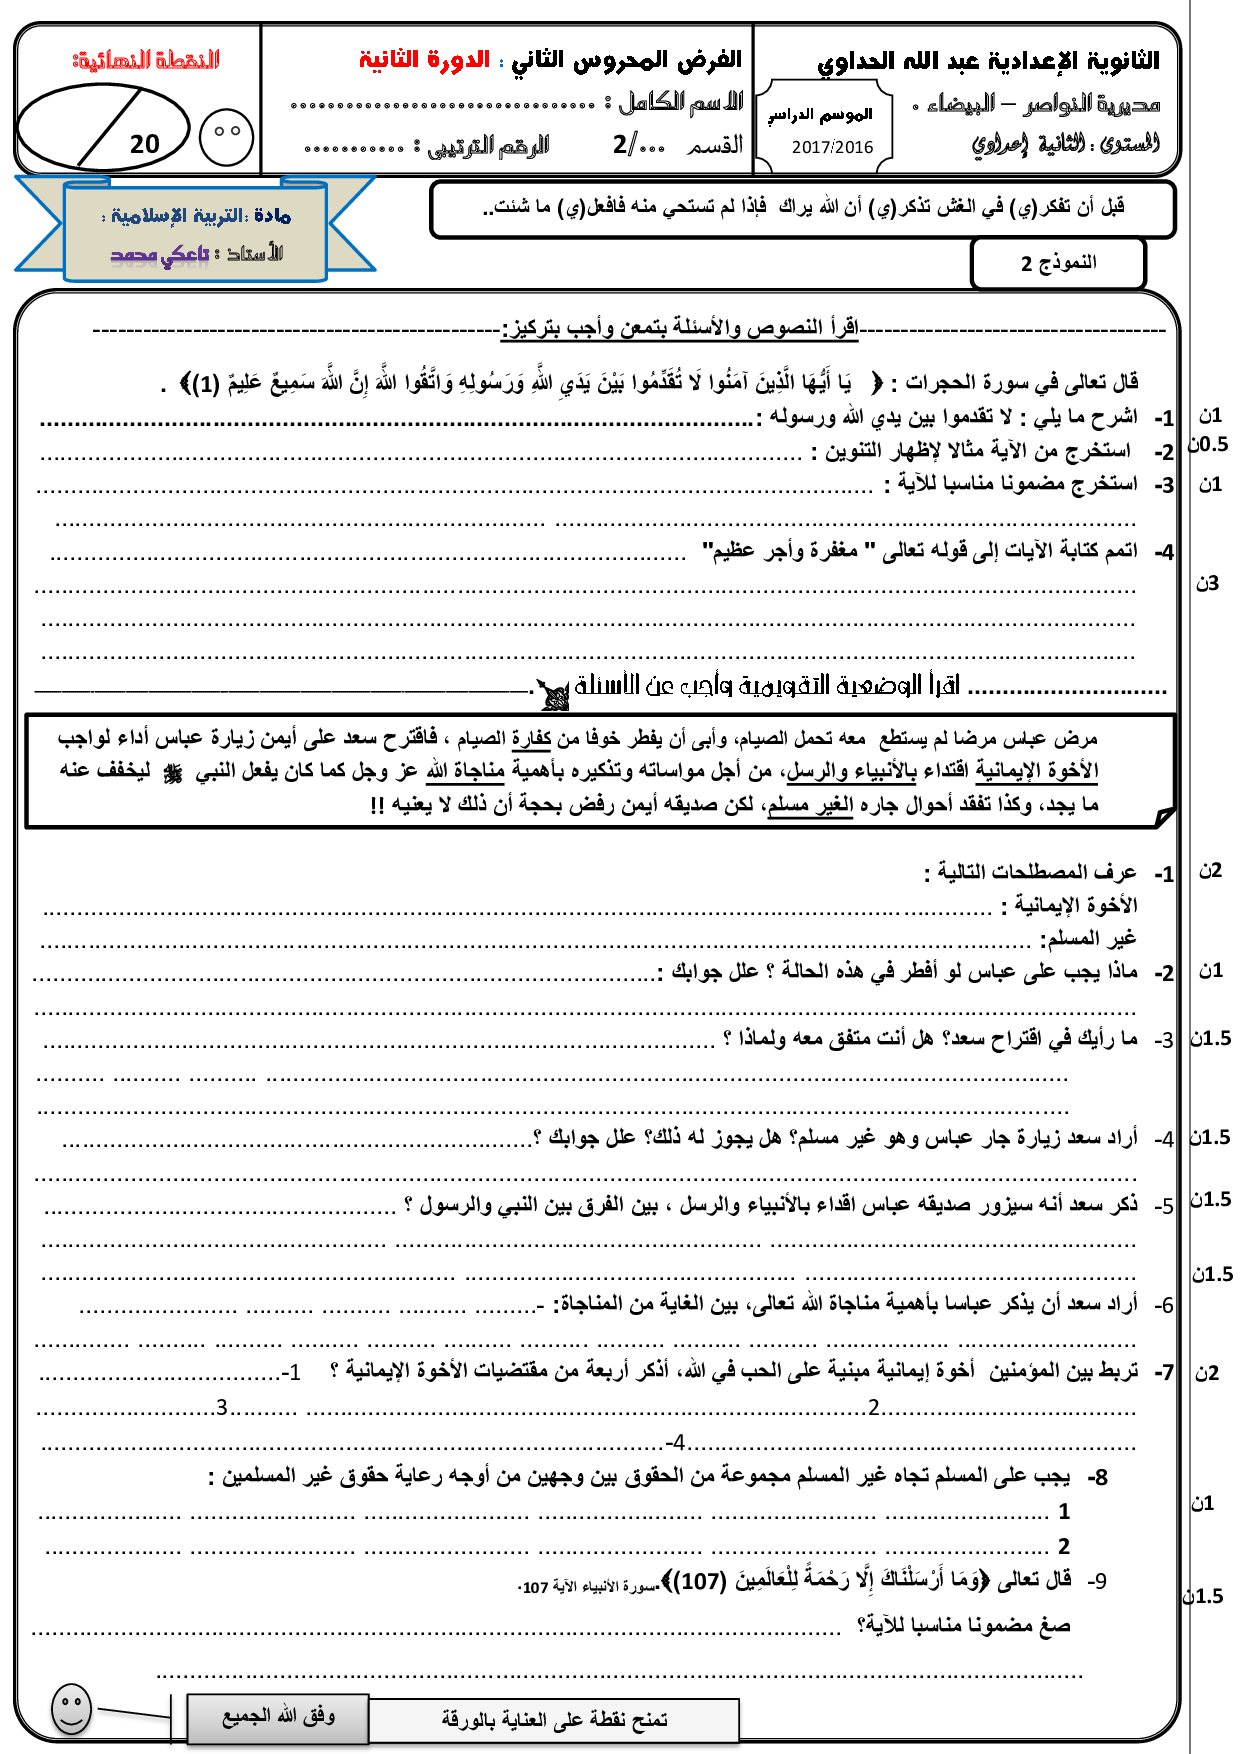 الثانوية الإعدادية عبد الله الحداوي
مديرية النواصر – البيضاء .
المستوى : الثانية إعدادي
الموسم الدراسي
2017/2016
الفرض المحروس الثاني : الدورة الثانية
الاسم الكامل : .................................
القسم .../2 الرقم الترتيبي : ...........
النقطة النهائية:
20
مادة :التربية الإسلامية :
الأستاذ : تاعكي محمد
قبل أن تفكر(ي) في الغش تذكر(ي) أن الله يراك فإذا لم تستحي منه فافعل(ي) ما شئت..
النموذج 2
-------------------------------------اقرأ النصوص والأسئلة بتمعن وأجب بتركيز:-------------------------------------------------
قال تعالى في سورة الحجرات : ﴿ يَا أَيُّهَا الَّذِينَ آمَنُوا لَا تُقَدِّمُوا بَيْنَ يَدَيِ اللَّهِ وَرَسُولِهِ وَاتَّقُوا اللَّهَ إِنَّ اللَّهَ سَمِيعٌ عَلِيمٌ (1)﴾ .
1- اشرح ما يلي : لا تقدموا بين يدي الله ورسوله :.................... 1ن
2- استخرج من الآية مثالا لإظهار التنوين : .................... 0.5ن
3- استخرج مضمونا مناسبا للآية : .................... 1ن
....................
4- اتمم كتابة الآيات إلى قوله تعالى " مغفرة وأجر عظيم" ....................
.................... 3ن
....................
....................
............................. اقرأ الوضعية التقويمية وأجب عن الأسئلة .____________________
مرض عباس مرضا لم يستطع معه تحمل الصيام، وأبى أن يفطر خوفا من كفارة الصيام ، فاقترح سعد على أيمن زيارة عباس أداء لواجب
الأخوة الإيمانية اقتداء بالأنبياء والرسل، من أجل مواساته وتذكيره بأهمية مناجاة الله عز وجل كما كان يفعل النبي ﷺ ليخفف عنه
ما يجد، وكذا تفقد أحوال جاره الغير مسلم، لكن صديقه أيمن رفض بحجة أن ذلك لا يعنيه !!
1- عرف المصطلحات التالية : 2ن
الأخوة الإيمانية : ....................
غير المسلم: ....................
2- ماذا يجب على عباس لو أفطر في هذه الحالة ؟ علل جوابك :.................... 1ن
....................
3- ما رأيك في اقتراح سعد؟ هل أنت متفق معه ولماذا ؟ .................... 1.5ن
....................
....................
4- أراد سعد زيارة جار عباس وهو غير مسلم؟ هل يجوز له ذلك؟ علل جوابك ؟.................... 1.5ن
....................
5- ذكر سعد أنه سيزور صديقه عباس اقداء بالأنبياء والرسل ، بين الفرق بين النبي والرسول ؟ .................... 1.5ن
....................
.................... 1.5ن
6- أراد سعد أن يذكر عباسا بأهمية مناجاة الله تعالى، بين الغاية من المناجاة: -....................
....................
7- تربط بين المؤمنين أخوة إيمانية مبنية على الحب في الله، أذكر أربعة من مقتضيات الأخوة الإيمانية ؟ 1-.................... 2ن
....................2....................3....................
....................4-....................
8- يجب على المسلم تجاه غير المسلم مجموعة من الحقوق بين وجهين من أوجه رعاية حقوق غير المسلمين :
1 .................... 1ن
2 ....................
9- قال تعالى ﴿وَمَا أَرْسَلْنَاكَ إِلَّا رَحْمَةً لِلْعَالَمِينَ (107)﴾.سورة الأنبياء الآية 107. 1.5ن
صغ مضمونا مناسبا للآية؟ ....................
....................
تمنح نقطة على العناية بالورقة
وفق الله الجميع